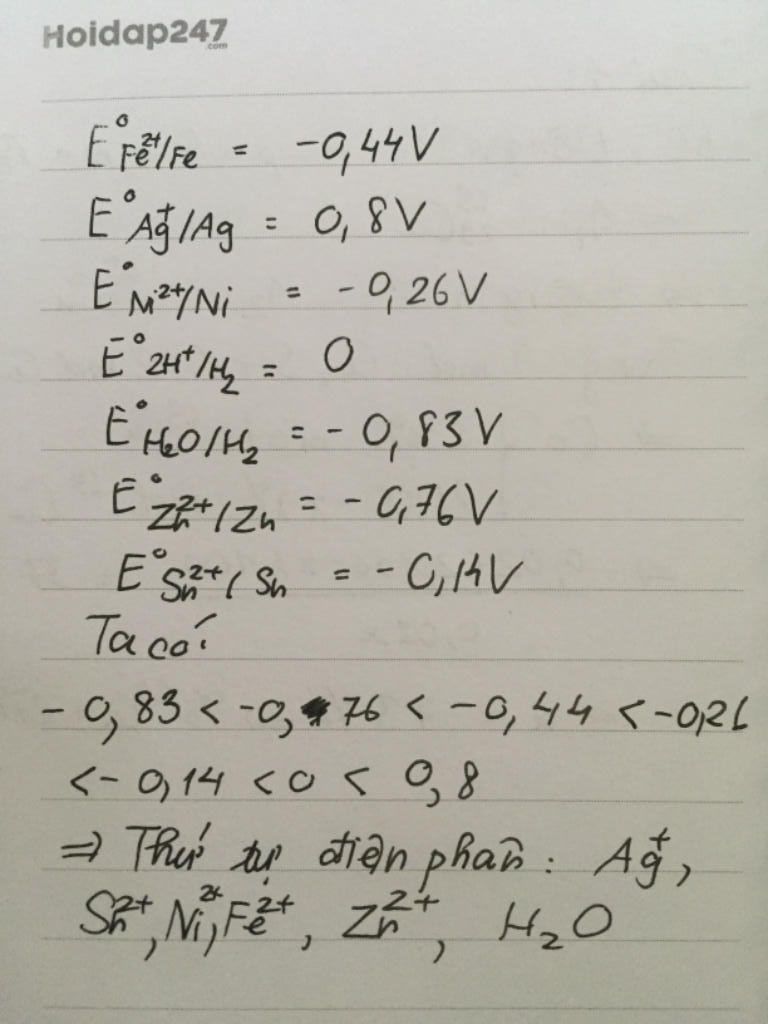 Hoidap247
.com
E°Fe²⁺/Fe = -0,44V
E°Ag⁺/Ag = 0,8V
E°Ni²⁺/Ni = -0,26V
E°2H⁺/H₂ = 0
E°H₂O/H₂ = -0,83V
E°Zn²⁺/Zn = -0,76V
E°Sn²⁺/Sn = -0,14V
Ta có:
-0,83 < -0,76 < -0,44 < -0,26
<-0,14 < 0 < 0,8
⇒ Thứ tự điện phân: Ag⁺,
Sn²⁺, Ni²⁺, Fe²⁺, Zn²⁺, H₂O